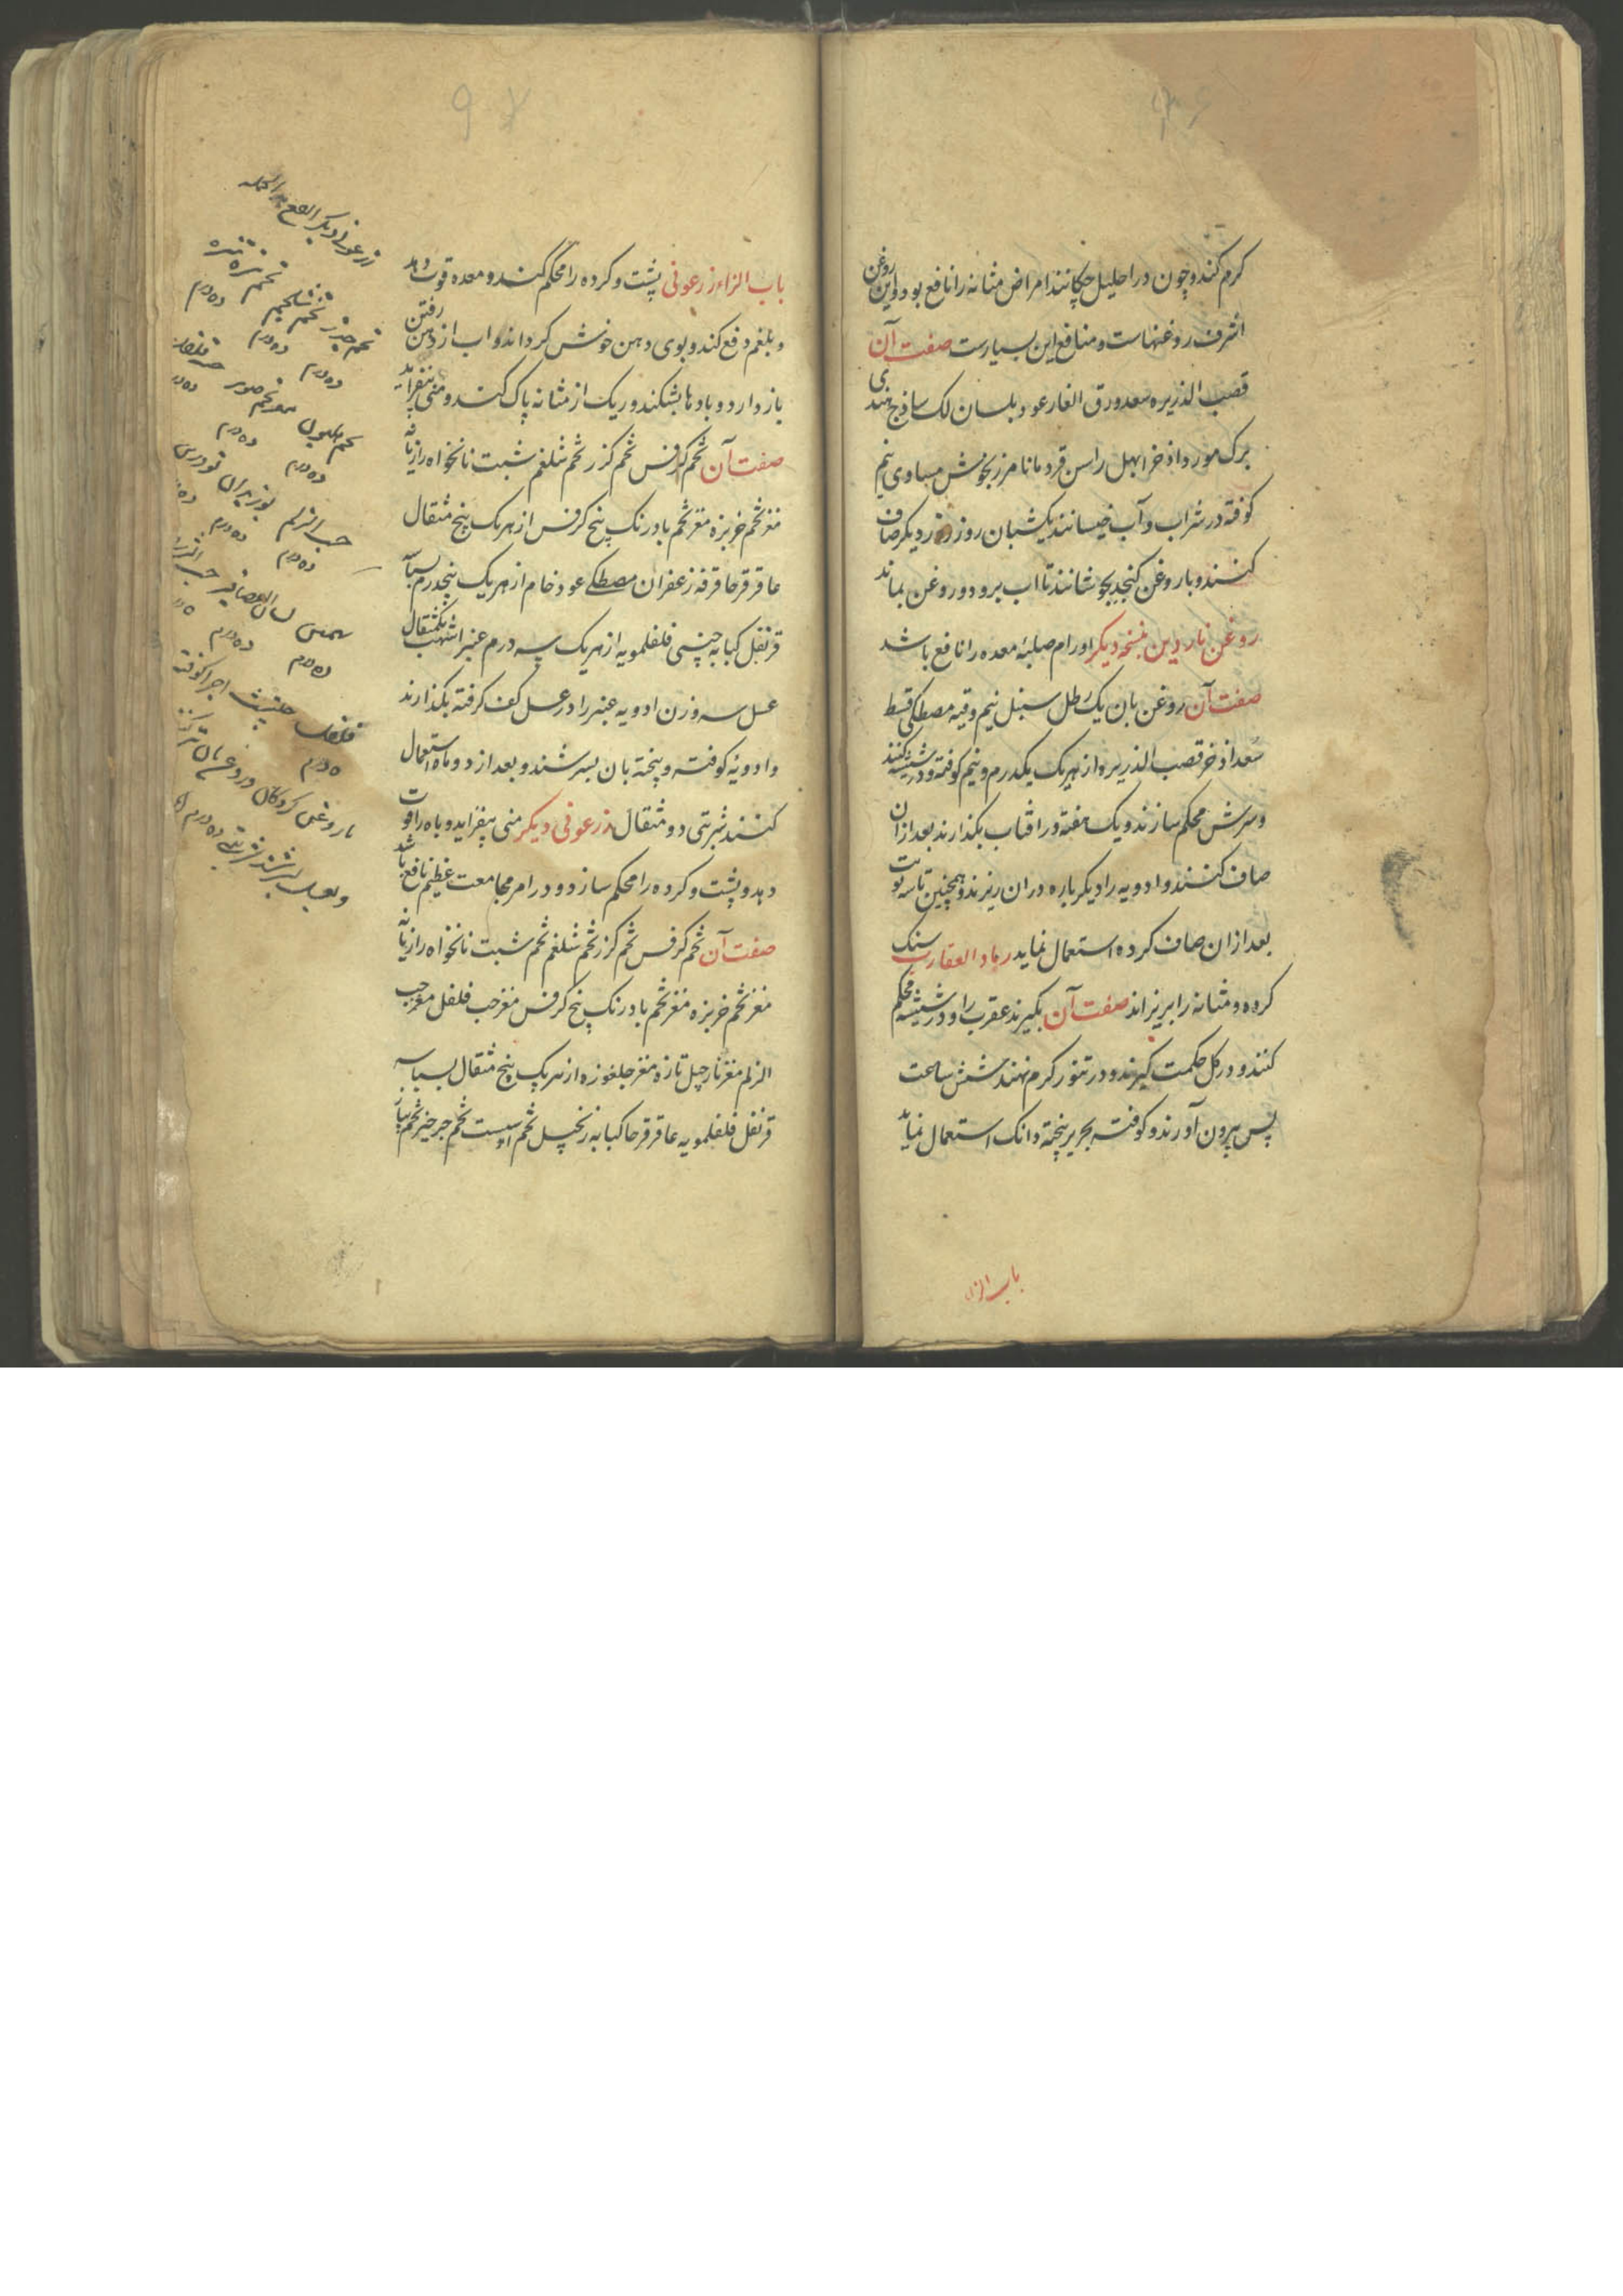 کرم کند و چون در احلیل چکانند امراض مثانه را نافع بود و این روغن
اشرف روغنهاست و منافع این بسیارست صفت آن
قصب الذریره سعد ورق الغار عود بلسان لک ساذج هندی
برک مورد اذخر ابهل راسن قردمانا مرزنجوش مساوی نیم
کوفته در شراب و آب خیسانند یکشبان روز روز دیکر صاف
کنند و با روغن کنجد بجوشانند تا اب برود و روغن بماند
روغن ناردین بنسخه دیکر اورام صلبهٔ معده را نافع باشد
صفت آن روغن بان یک رطل سنبل نیم وقیه مصطکی قسط
سعد اذخر قصب الذریره از هر یک یکدرم و نیم کوفته و در شیشه کنند
و سرش محکم سازند و یک هفته در افتاب بکذارند بعد از ان
صاف کنند و ادویه را دیکر باره در ان ریزند و همچنین تا سه نوبت
بعد از ان صاف کرده استعمال نماید رماد العقارب سنک
کرده و مثانه را بریزاند صفت آن بکیرند عقرب را و در شیشه محکم
کنند و در کل حکمت کیرند و در تنور کرم نهند شش ساعت
پس بیرون آورند و کوفته بحریر پنجته دانک استعمال نماید
باب الزا
باب الزاء زرعونی پشت و کرده را محکم کند و معده قوت دهد
و بلغم دفع کند و بوی دهن خوش کرداند و اب از دهن رفتن
باز دارد و بادها بشکند و ریک از مثانه پاک کند و منی بیفزاید
صفت آن تخم کرفس تخم کزر تخم شلغم شبت نانخواه رازیانه
مغز تخم خربزه مغز تخم بادرنک بیخ کرفس از هر یک پنج مثقال
عاقرقرحا قرفه زعفران مصطکی عود خام از هر یک پنجدرم بسباسه
قرنفل کبابه چینی فلفلمویه از هر یک سه درم عنبر اشهب یکمثقال
عسل سه وزن ادویه عنبر را در عسل کف کرفته بکذارند
و ادویهٔ کوفته و پنجته بان بسرشند و بعد از دو ماه استعمال
کنند شربتی دو مثقال زرعونی دیکر منی بیفزاید و باه را قوت
دهد و پشت و کرده را محکم سازد و در امر مجامعت عظیم نافع باشد
صفت آن تخم کرفس تخم کزر تخم شلغم تخم شبت نانخواه رازیانه
مغز تخم خربزه مغز تخم بادرنک بیخ کرفس مغز حب فلفل مغز حب
الزلم مغز نارجیل تازه مغز جلغوزه از هر یک پنج مثقال بسباسه
قرنفل فلفلمویه عاقرقرحا کبابه زنجبیل تخم اسپست تخم جرجیر تخم پیاز
زرعونی دیکر
تخم جزر تخم شلجم تخم تره
ده درم ده درم ده درم
ده درم ده درم
حب الزلم بوزیدان تودری
ده درم ده درم
لسان العصافیر
ده درم ده درم
حلتیت اجزا کوفته
ده درم
و بعسل بسرشند شربتی ده درم